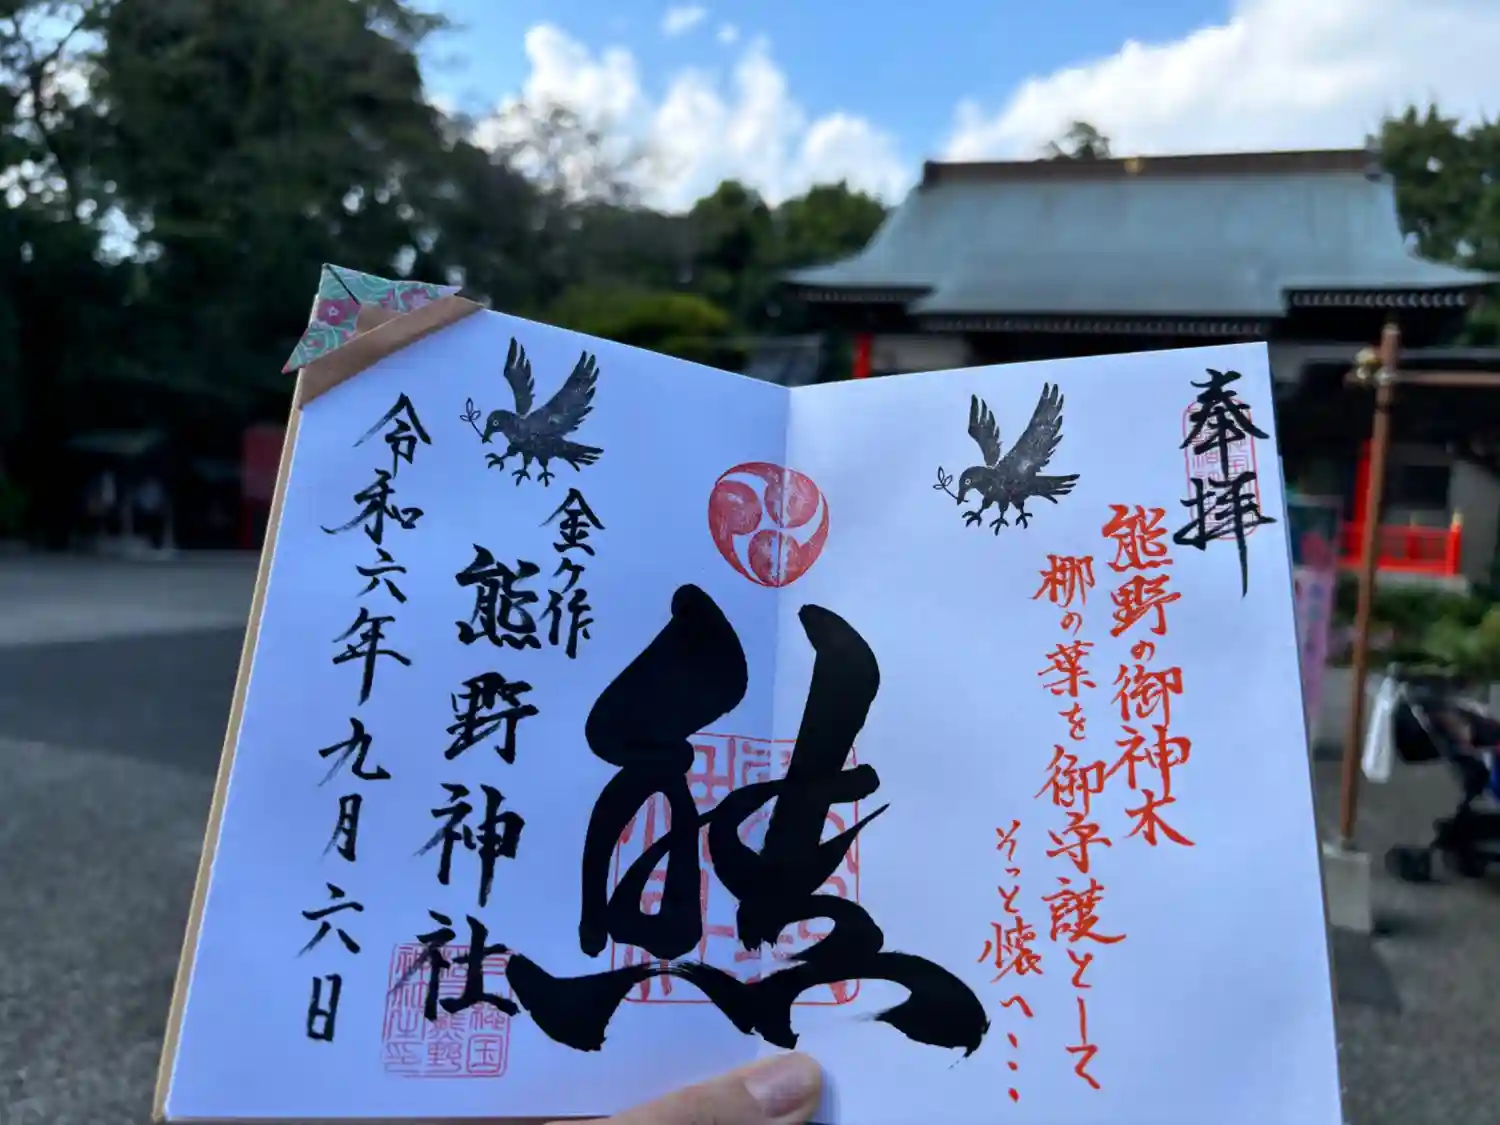 奉拝
熊野の御神木
梛の葉を御守護として
そっと懐へ・・・
熊
金ケ作
熊野神社
令和六年九月六日